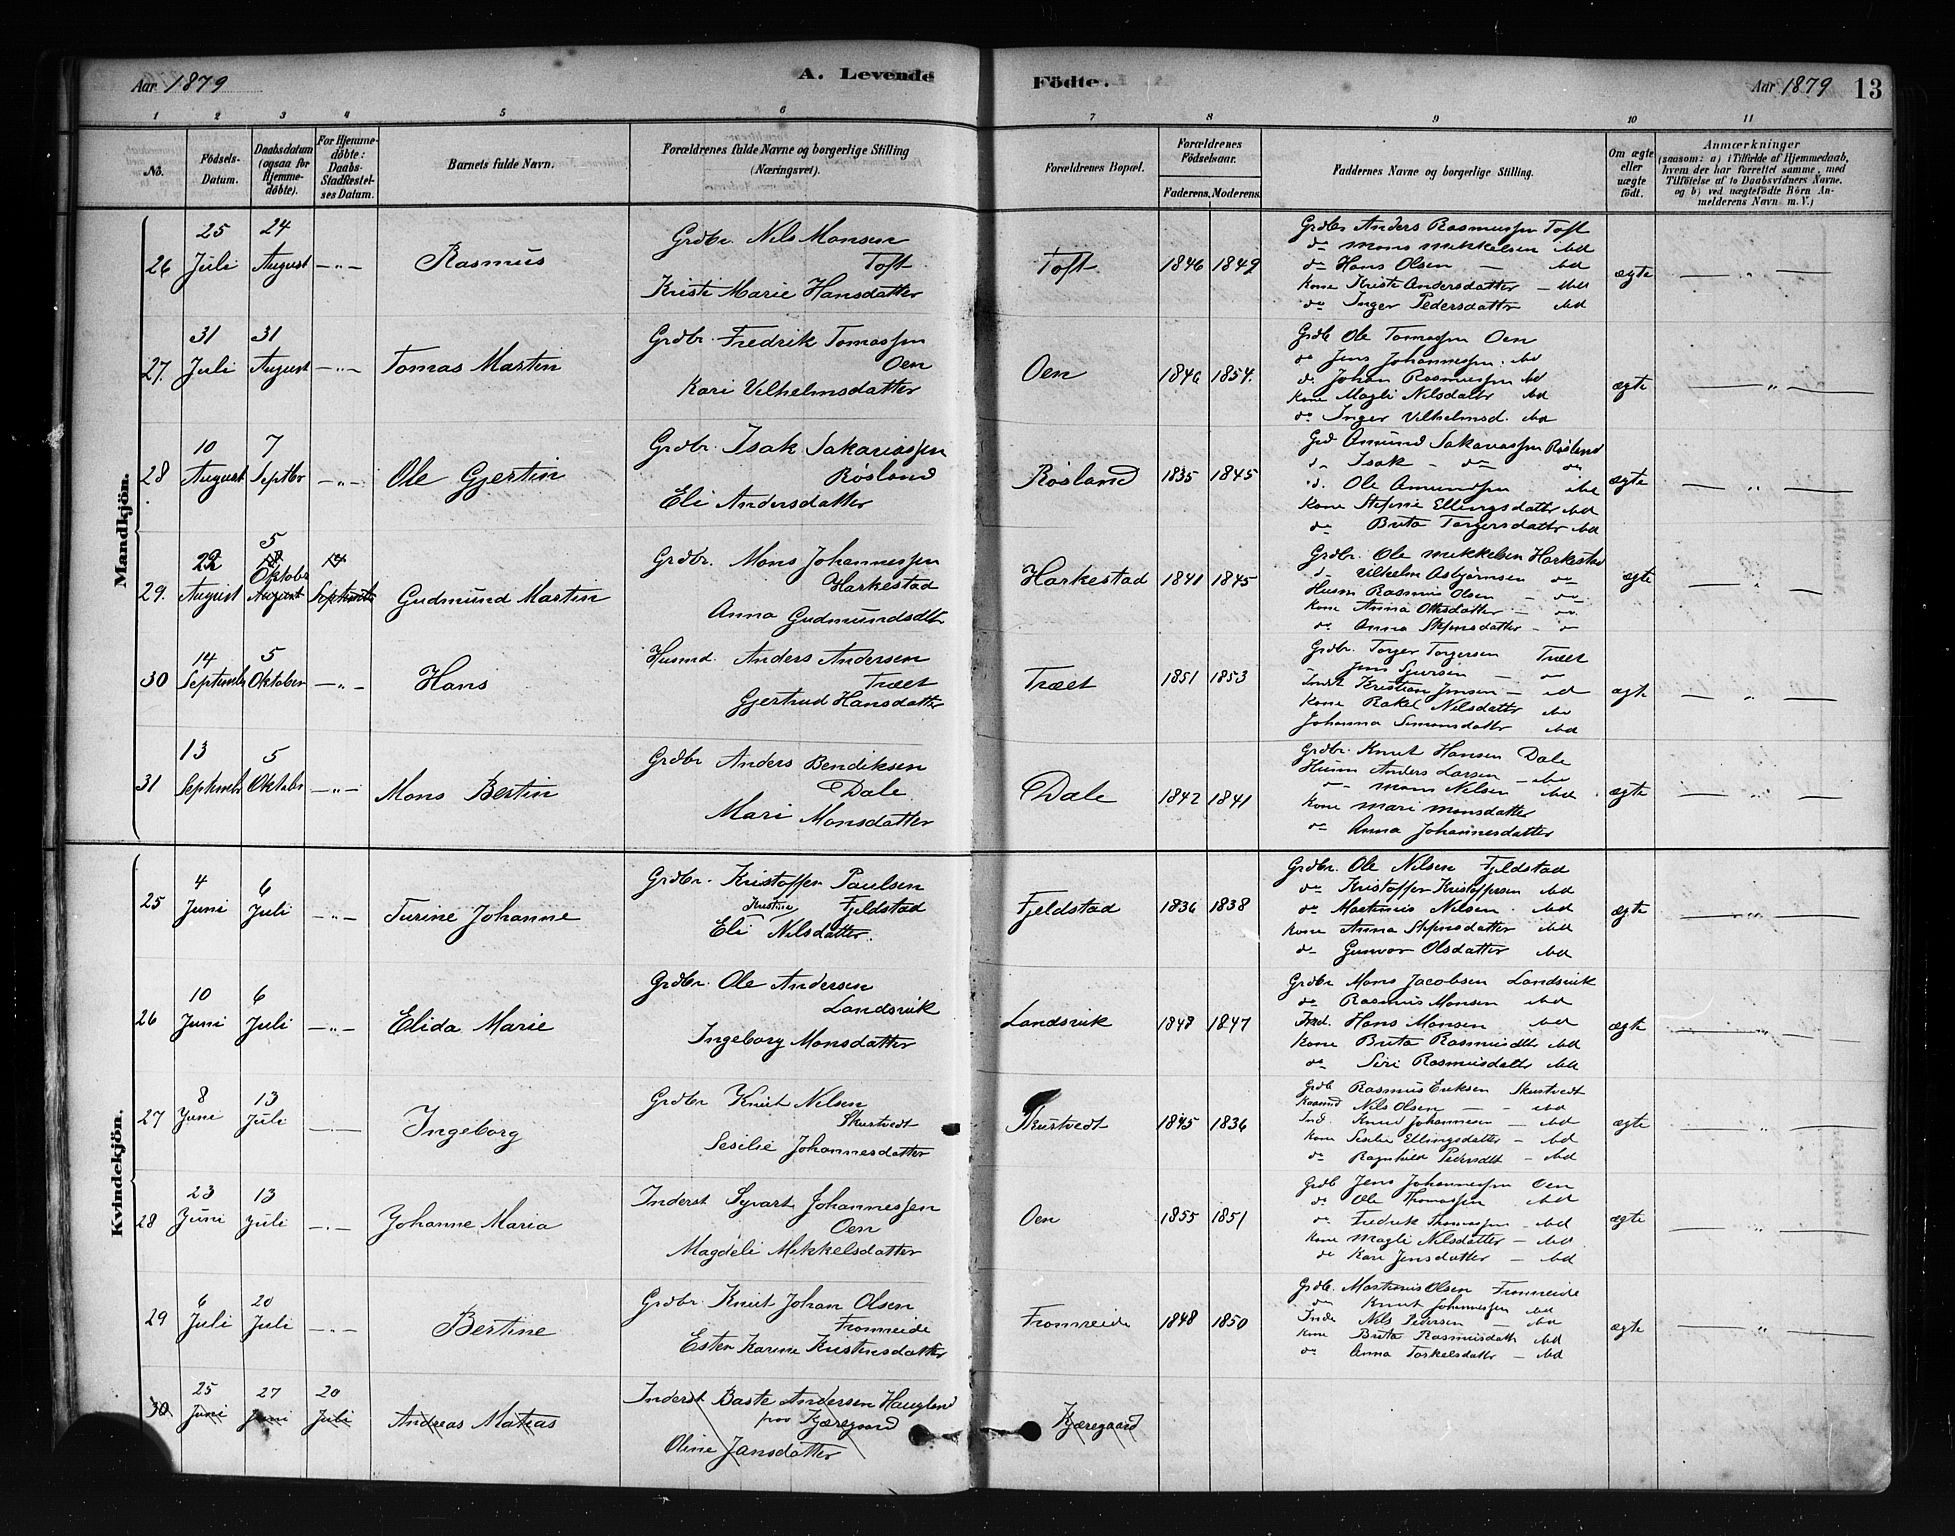 Aar 1879
A. Levende
Födte.
Aar 1879
13
1 2 3 4 5 6 7 8 9 10 11
No.
Födsels-
Datum.
Daabsdatum
(ogsaa for
Hjemme-
döbte).
For Hjemme-
döbte:
Daabs-
Stadfæstel-
ses Datum.
Barnets fulde Navn.
Forældrenes fulde Navne og borgerlige Stilling
(Næringsvei).
Forældrenes Bopæl.
Forældrenes
Födselsaar.
Faderens. Moderens.
Faddernes Navne og borgerlige Stilling.
Om ægte
eller
uægte
födt.
Anmærkninger
(saasom: a) i Tilfælde af Hjemmedaab,
hvem der har forrettet samme, med
Tilföielse af to Daabsvidners Navne.
og b) ved uægtefödte Börn An-
melderens Navn m. V.)
Mandkjön.
26
25
Juli
24
August
— " —
Rasmus
Grdbr. Nils Monsen
Toft
Kristi Marie Hansdatter
Toft
1846 1849
Grdbr Anders Rasmussen Toft
do Mons Mikkelsen ibd
do Hans Olsen — ibd
Kone Kristi Andersdatter — ibd
do Inger Pedersdatter ibd
ægte
— " —
27.
31
Juli
31
August
— " —
Tomas Martin
Grdbr. Fredrik Tomassen
Oen
Kari Vilhelmsdatter
Oen
1846 1854.
Grdb Ole Tomassen Oen
do Jens Johannessen ibd
do Johan Rasmussen ibd
Kone Magli Nilsdatter ibd
do Inger Vilhelmsd. ibd
ægte
— " —
28
10
August
7
Septbr
— " —
Ole Gjertin
Grdbr. Isak Sakariassen
Røsland
Eli Andersdatter
Røsland
1835 1845
Grd Amund Sakariassen Røsland
do Isak — do do
d. Ole Amundsen ibd
Kone Stefine Ellingsdatter ibd
do Brita Torgersdatter ibd
ægte
— " —
29.
22
August
5
Oktober
August
14
September
Gudmund Martin
Grdbr. Mons Johannessen
Harkestad
Anna Gudmundsdtr
Harkestad
1841 1845
Grdbr. Ole Mikkelsen Harkestad
d. Vilhelm Asbjørnsen do
Husm Rasmus Olsen — do
Kone Anna Olsdatter — do
do Anna Stefensdatter — do
ægte
— " —
30
14
Septembr
5
Oktober
— " —
Hans
Husmd. Anders Andersen
Træet
Gjertrud Hansdatter
Træet
1851 1853
Grdbr. Torger Torgersen Træet
Jens Sjursen — do
Indst Kristian Jensen — ibd
Kone Rakel Nilsdatter ibd
Johanna Simonsdatter ibd
ægte
— " —
31
13
Septembr
5
Oktober
— " —
Mons Bertin
Grdbr Anders Bendiksen
Dale
Mari Monsdatter
Dale
1842 1841
Grdbr. Knut Hansen Dale
Husm Anders Larsen — ibd
do Mons Nilsen ibd
Kone Mari Monsdatter
do Anna Johannesdatter
ægte
— " —
Kvindekjön.
25
4
Juni
6
Juli
— " —
Turine Johanne
Grdbr. Kristoffer Paulsen
Kristine Fjeldstad
Eli Nilsdatter.
Fjeldstad
1836 1838
Grdbr. Ole Nilsen Fjeldstad
do Kristoffer Kristoffersen ibd
do Martinus Nilsen ibd
Kone Anna Stefensdatter ibd
do Gunvor Olsdatter ibd
ægte
— " —
26
10
Juni
6
Juli
— " —
Elida Marie
Grdbr. Ole Andersen
Landsvik
Ingeborg Monsdatter
Landsvik
1848 1847
Grdbr Mons Jacobsen Landsvik
do Rasmus Monsen ibd
Ind. Hans Monsen ibd
Kone Brita Rasmusdtr ibd
do Siri Rasmusdatter ibd
ægte
— " —
27
8
Juni
13
Juli
— " —
Ingeborg
Grdbr Knut Nilsen
Skurtvedt
Sesilie Johannesdatter
Skurtvedt
1845 1836
Grdb Rasmus Eriksen Skurtvedt
Nils Olsen — ibd
Ind. Knud Johannesen — ibd
Kone Sesilie Ellingsdatter — ibd
do Ragnhild Pedersdt — ibd
ægte
— " —
28
23
Juni
13
Juli
— " —
Johanne Maria
Inderst Syvart Johannessen
Oen
Magdeli Mikkelsdatter
Oen
1855 1851
Grdb Jens Johannessen Oen
do Ole Thomassen ibd
do Fredrik Thomassen — ibd
Kone Magli Nilsdatter — ibd
do Kari Jensdatter — ibd
ægte
— " —
29
6
Juli
20
Juli
— " —
Bertine
Grdbr. Knut Johan Olsen
Fromreide
Ester Karine Kristensdatter
Fromreide
1848 1850
Grdb. Martinus Olsen Fromreide
do Knut Johannessen ibd
Inds Nils Pedersen — ibd
Kone Brita Rasmusdatt ibd
do Anna Torkelsdatter — ibd
ægte
— " —
30
25
Juni
27
Juni
20
Juli
Andreas Matias
Inderst Baste Andersen Haugland
paa Kjæregaard
Oline Jansdatter
Kjæregaard